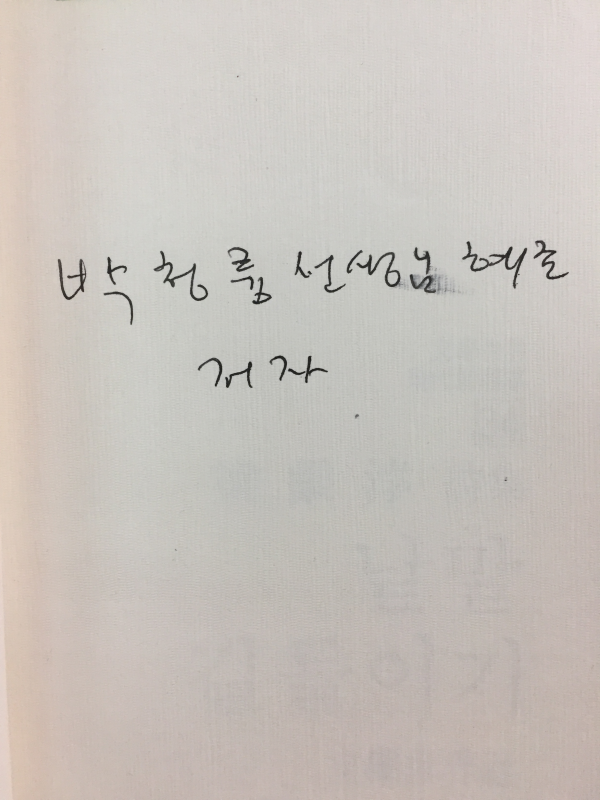 박청륭 선생님 혜존
저자